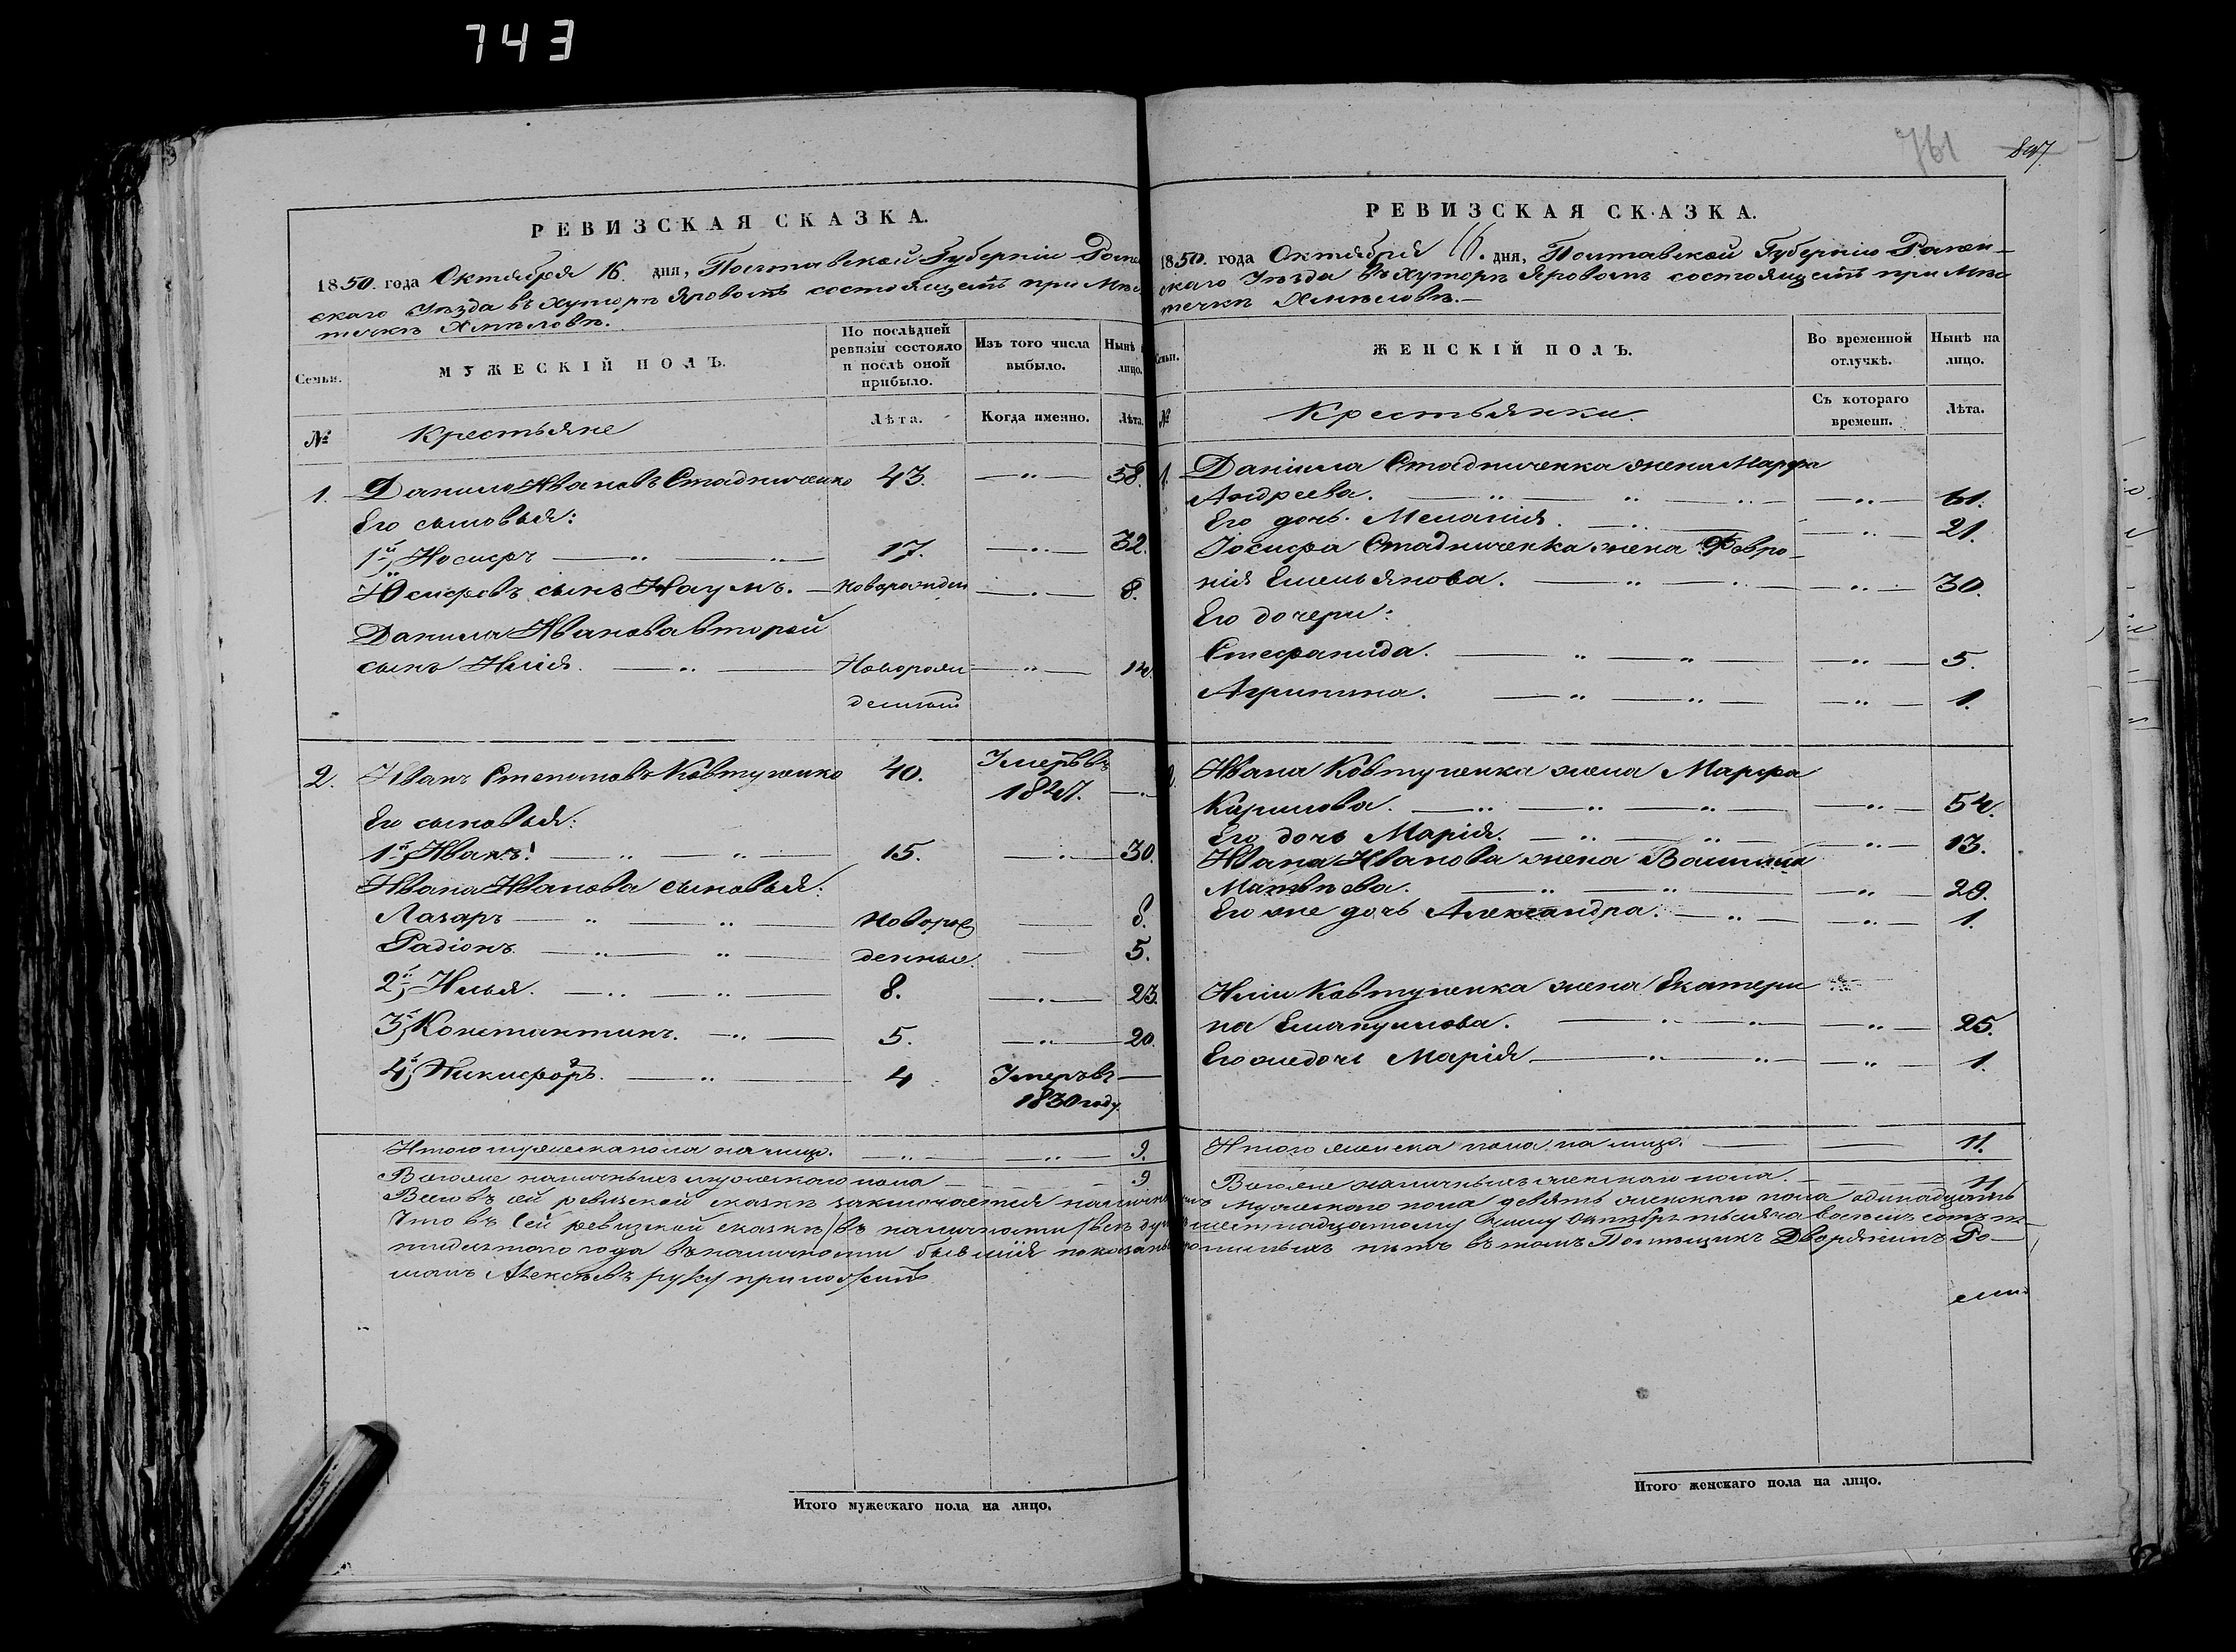 743
761
897
РЕВИЗСКАЯ СКАЗКА.
1850 года Октября 16. дня, Полтавской Губерніи Ромен
скаго Уѣзда въ Хуторѣ Яровомъ состоящемъ при Мѣс
течкѣ Хмѣловѣ.
Семьи.
МУЖЕСКІЙ ПОЛЪ.
По послѣдней ревизіи состояло и послѣ оной прибыло.
Изъ того числа выбыло.
Нынѣ на лицо.
№
Крестьяне
Лѣта.
Когда именно.
Лѣта.
1. Данило Ивановъ Стадниченко 43. —"— 58.
Его сыновья:
1й Иосифъ —"— 17. —"— 32.
Иосифовъ сынъ Наумъ. — новорожден —"— 8.
Данила Иванова второй
сынъ Илія. —"— Новорож —"— 14.
денный
2. Иванъ Степановъ Ковтуненко 40. Умеръ въ
1847. —"—
Его сыновья:
1й Иванъ. —"— 15. —"— 30.
Ивана Иванова сыновья:
Лазарь —"— новорож — 8.
Радіонъ. —"— денные. — 5.
2й Илья. —"— 8. —"— 23.
3й Константинъ. —"— 5. —"— 20.
4й Никифоръ. —"— 4 Умеръ въ —
1830 году
Итого мужеска пола на лицо. —"— 9.
Всего же наличныхъ мужескаго пола — 9
РЕВИЗСКАЯ СКАЗКА.
1850. года Октября 16. дня, Полтавской Губерніи Ромен-
скаго Уѣзда въ Хуторѣ Яровомъ состоящемъ при Мѣс
течкѣ Хмѣловѣ.—
Семьи.
ЖЕНСКІЙ ПОЛЪ.
Во временной отлучкѣ.
Нынѣ на лицо.
№
Крестьянки.
Съ котораго времени.
Лѣта.
1. Даніила Стадниченка жена Марфа
Андреева. —"— 61.
Его дочь Меланія. —"— 21.
Іосифа Стадниченка жена Февро-
нія Емельянова. —"— 30.
Его дочери:
Стефанида. —"— 5.
Агрипина. —"— 1.
2. Ивана Ковтуненка жена Марфа
Карпилова. —"— 54.
Его дочь Марія. —"— 13.
Ивана Иванова жена Васила
Матвѣева. —"— 29.
Его же дочь Александра. —"— 1.
Иліи Ковтуненка жена Екатери
на Емануилова. —"— 25.
Его же дочь Марія —"— 1.
Итого женска пола на лицо. — 11.
Всего же наличныхъ женскаго пола. — 11
Всего въ сей ревизской сказкѣ заключается наличныхъ мужескаго пола девять женскаго пола одинадцать
Что въ сей ревизской сказкѣ въ наличности всѣ души шестнадцатому числу Октября тысяча восемь сотъ пя
тидесятаго года въ наличности бывшія показаны пропущенныхъ нѣтъ въ томъ Помѣщикъ Дворянинъ Ро-
манъ Алексѣевъ руку приложилъ
Итого мужескаго пола на лицо.
Итого женскаго пола на лицо.